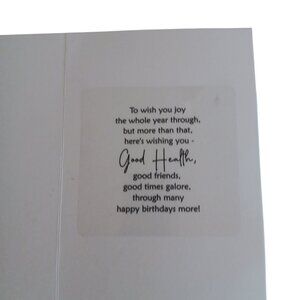 To wish you joy
the whole year through,
but more than that,
here's wishing you -
Good Health,
good friends,
good times galore,
through many
happy birthdays more!